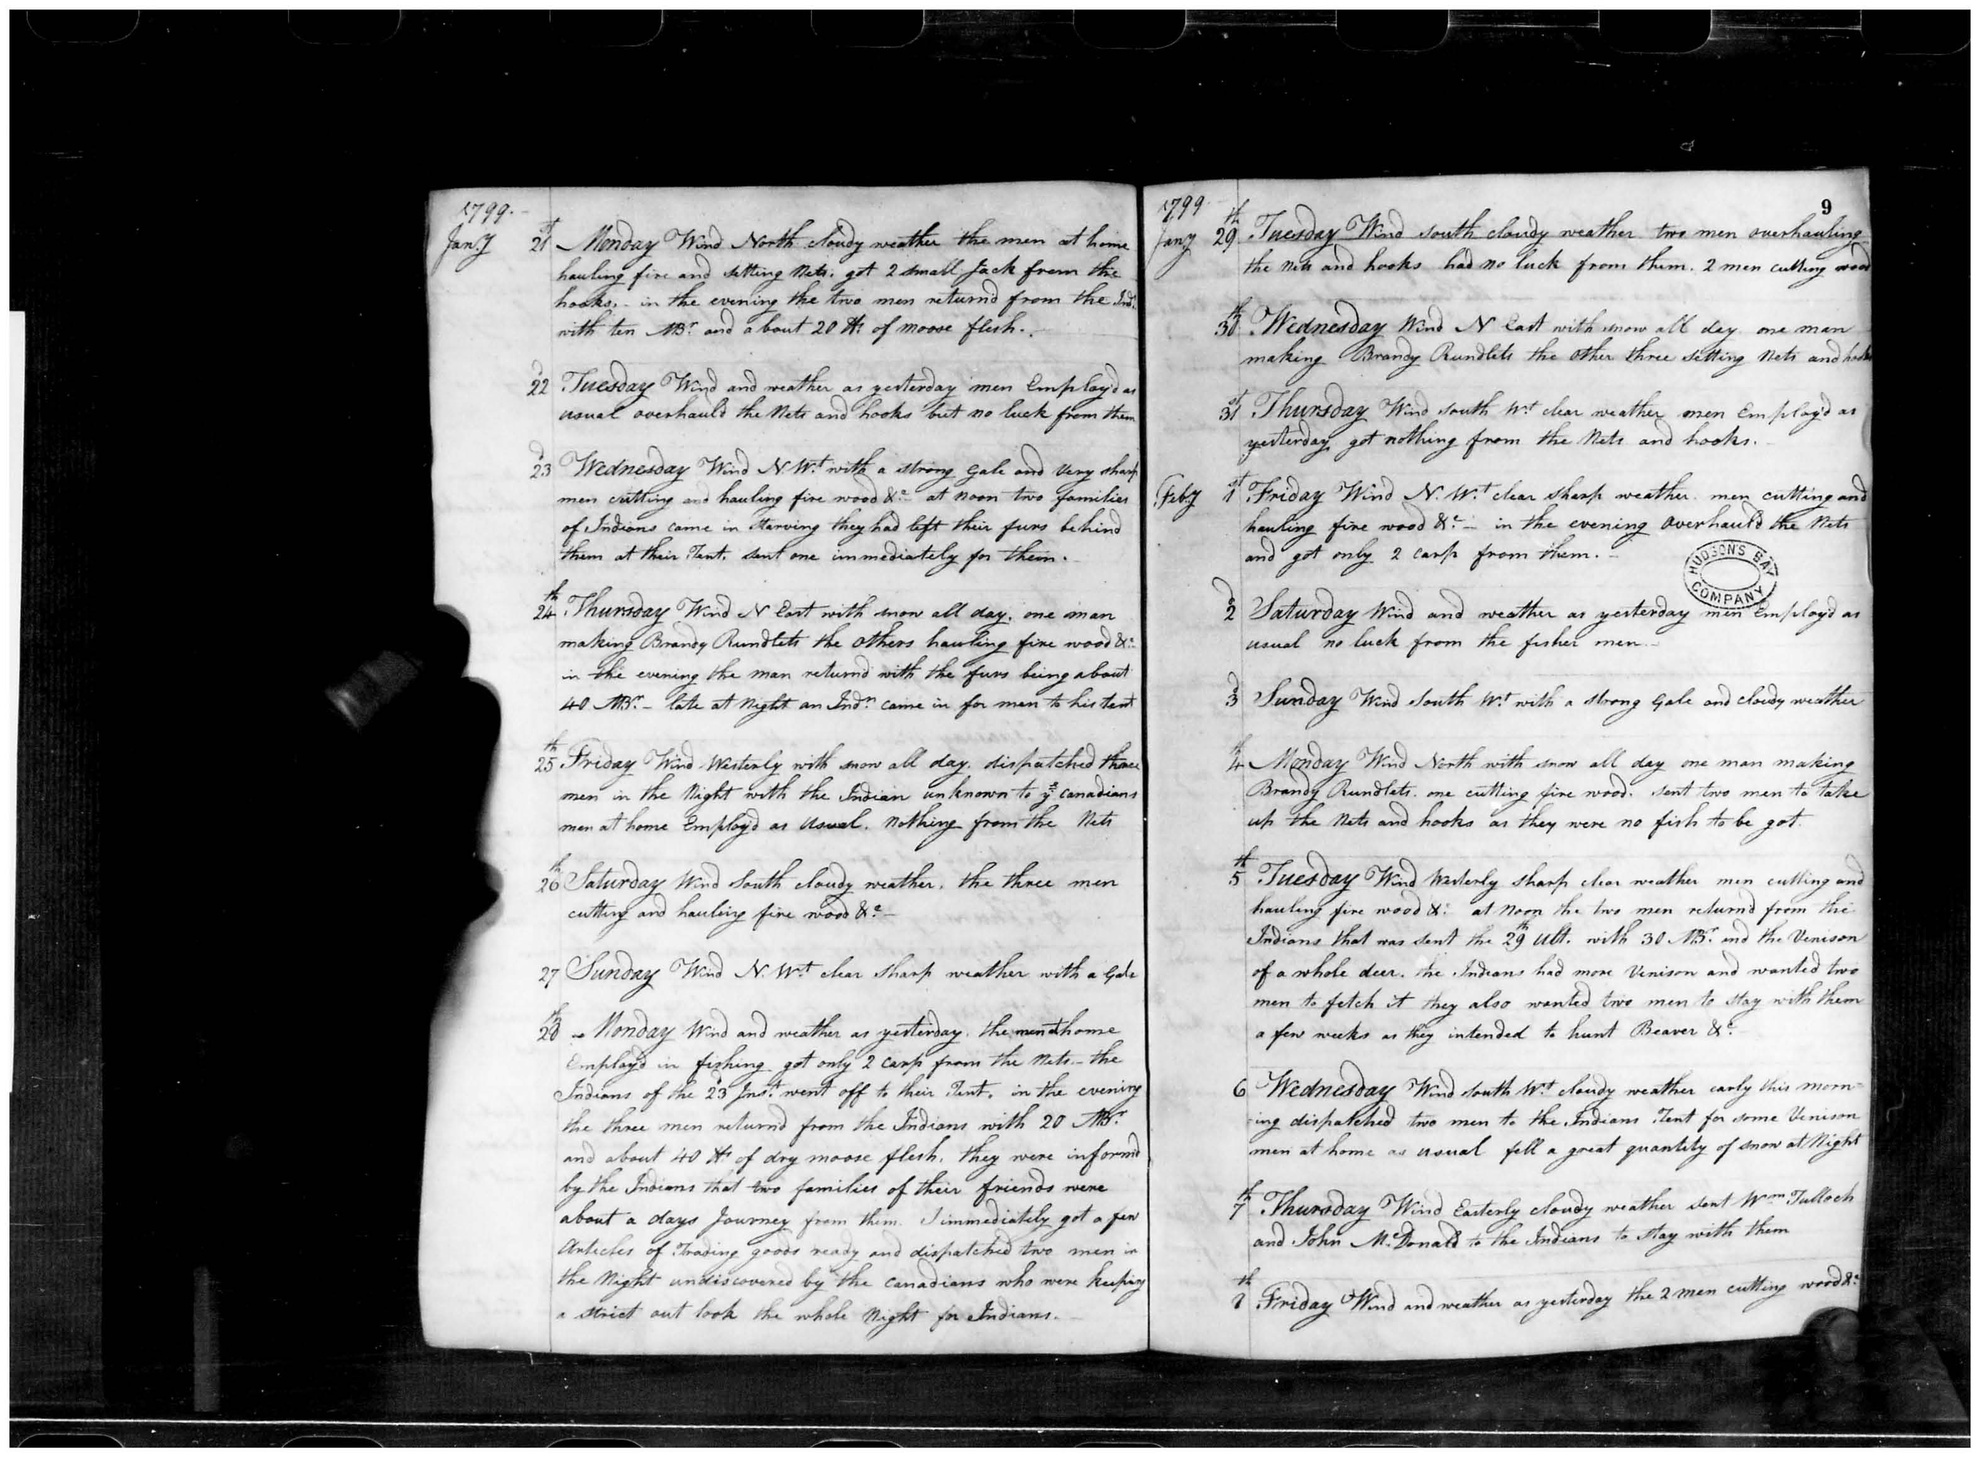 1799.
Jan.y 21st Monday Wind North cloudy weather the men at home
hauling fire and setting Nets. got 2 small Jack from the
hooks. - in the evening the two men returnd from the Inds.
with ten MBr. and about 20 lbs of moose flesh. -
22d Tuesday Wind and weather as yesterday men Employ'd as
usual overhauld the Nets and hooks but no luck from them
23d Wednesday Wind N. Wt. with a strong Gale and Very sharp
men cutting and hauling fire wood &c. at Noon two families
of Indians came in starving they had left their furs behind
them at their Tent. sent one immediately for them. -
24th Thursday Wind N East with snow all day. one man
making Brandy Rundlets the others hauling fire wood &c.
in the evening the man returnd with the furs being about
40 MBr. - late at Night an Indn. came in for men to his tent
25th Friday Wind Westerly with snow all day. dispatched three
men in the Night with the Indian unknown to ye Canadians
men at home Employ'd as Usual. nothing from the Nets
26th Saturday Wind South cloudy weather. the three men
cutting and hauling fire wood &c. -
27 Sunday Wind N. Wt. clear sharp weather with a Gale
28th - Monday Wind and weather as yesterday. the men at home
Employ'd in fishing got only 2 carp from the Nets - the
Indians of the 23d Inst. went off to their Tent. in the evening
the three men returnd from the Indians with 20 MBr.
and about 40 lbs of dry moose flesh. they were inform'd
by the Indians that two families of their friends were
about a days Journey from them. I immediately got a few
Articles of Trading goods ready and dispatched two men in
the Night undiscovered by the Canadians who were keeping
a strict out look the whole Night for Indians. -
9
1799
Jany 29th Tuesday Wind South cloudy weather two men overhauling
the Nets and hooks had no luck from them. 2 men cutting wood
30th Wednesday Wind N East with snow all day one man
making Brandy Rundlets the other three setting Nets and hooks
31st Thursday Wind South Wt. clear weather men Employ'd as
yesterday got nothing from the Nets and hooks. -
Feby 1st Friday Wind N. Wt. clear sharp weather men cutting and
hauling fire wood &c. - in the evening overhauld the Nets
and got only 2 carp from them. -
HUDSON'S BAY COMPANY
2d Saturday Wind and weather as yesterday men Employ'd as
usual no luck from the fisher men. -
3d Sunday Wind South Wt. with a strong Gale and cloudy weather
4th Monday Wind North with snow all day one man making
Brandy Rundlets. one cutting fire wood. sent two men to take
up the Nets and hooks as they were no fish to be got.
5th Tuesday Wind Westerly sharp clear weather men cutting and
hauling fire wood &c. at Noon the two men returnd from the
Indians that was sent the 29th Ult. with 30 MBr. and the Venison
of a whole deer. the Indians had more Venison and wanted two
men to fetch it they also wanted two men to stay with them
a few weeks as they intended to hunt Beaver &c. -
6 Wednesday Wind South Wt. cloudy weather early this morn=
ing dispatched two men to the Indians Tent for some Venison
men at home as usual fell a great quantity of snow at Night
7th Thursday Wind Easterly cloudy weather sent Wm Tulloch
and John McDonald to the Indians to stay with them
8th Friday Wind and weather as yesterday the 2 men cutting wood &c.